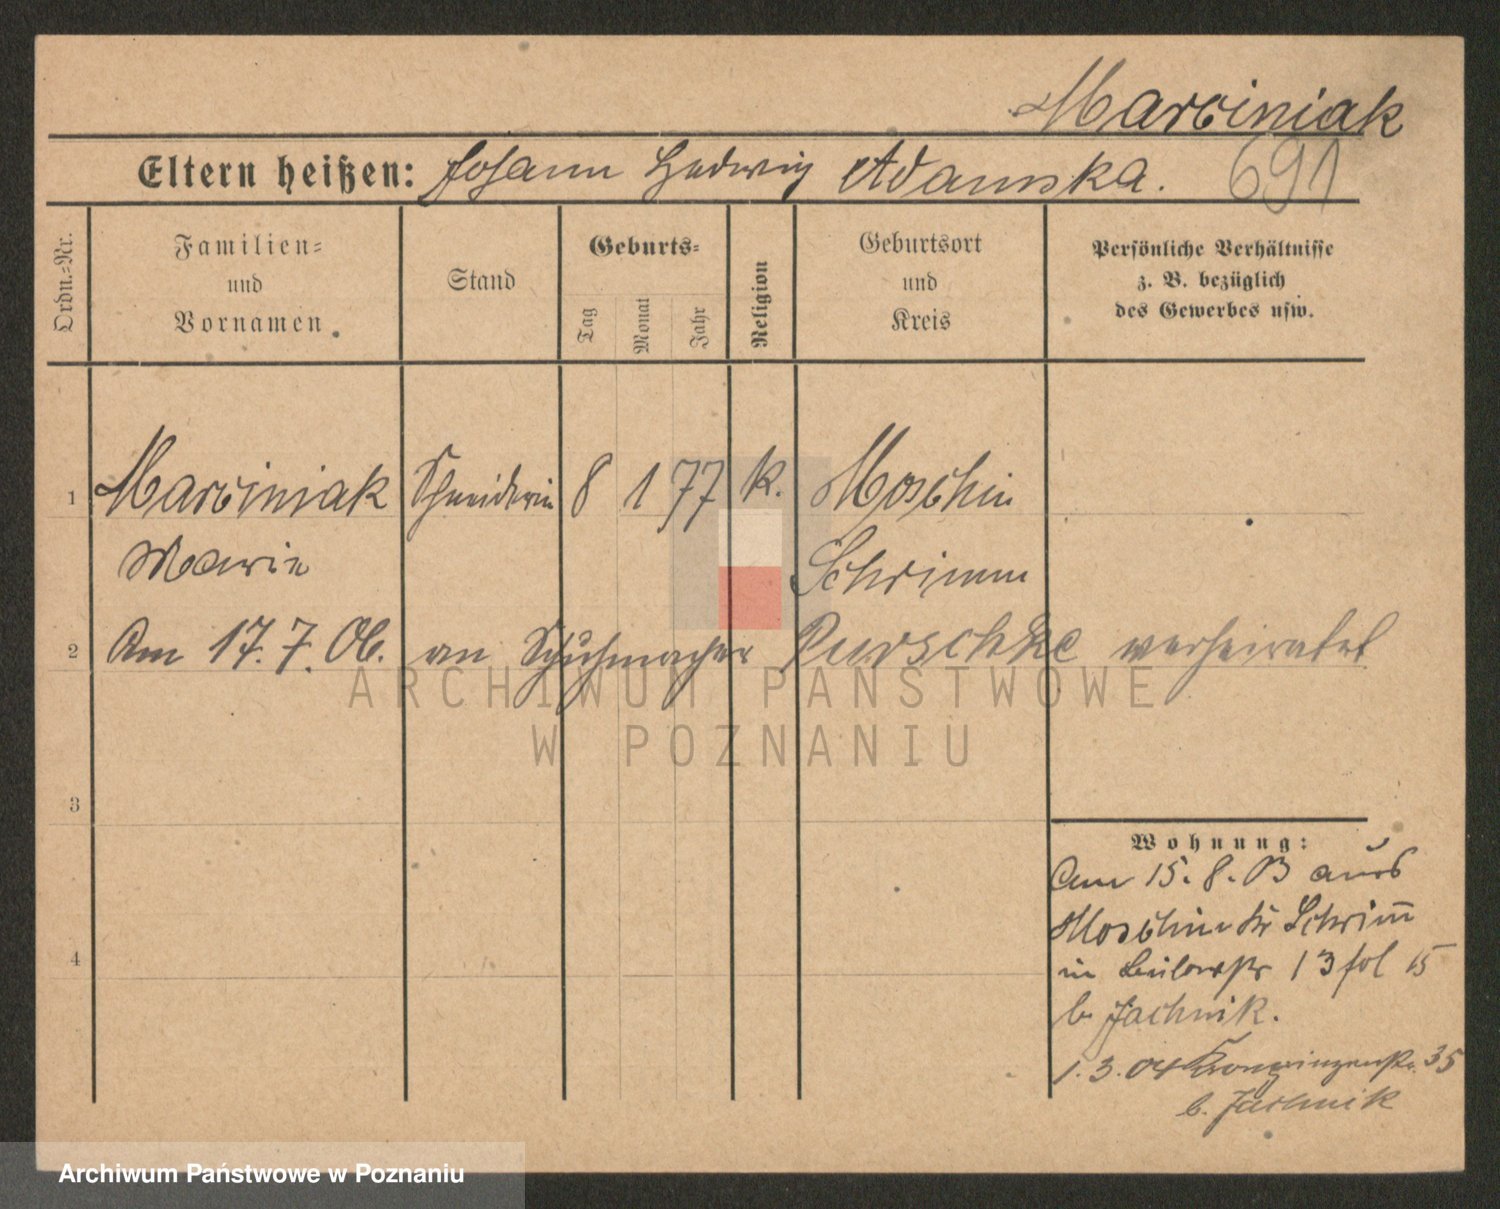 Marciniak
Eltern heißen: Johann Hedwig Adamska.
691
Ordn.=Nr.
Familien=
und
Vornamen
Stand
Geburts=
Tag
Monat
Jahr
Religion
Geburtsort
und
Kreis
Persönliche Verhältnisse
z. B. bezüglich
des Gewerbes usw.
1 Marciniak Schneiderin 8 1 77 k. Moschin
Marie Schrimm
2 Am 17. 7. 06. an Schuhmacher Purschke verheiratet
3
4
Wohnung:
Am 15. 8. 03 aus
Moschin Kr Schrimm
in 13 fol 15
b. Jachnik.
1. 3. 04 Kronprinzenstr. 35
b. Jachnik
ARCHIWUM PAŃSTWOWE
W POZNANIU
Archiwum Państwowe w Poznaniu